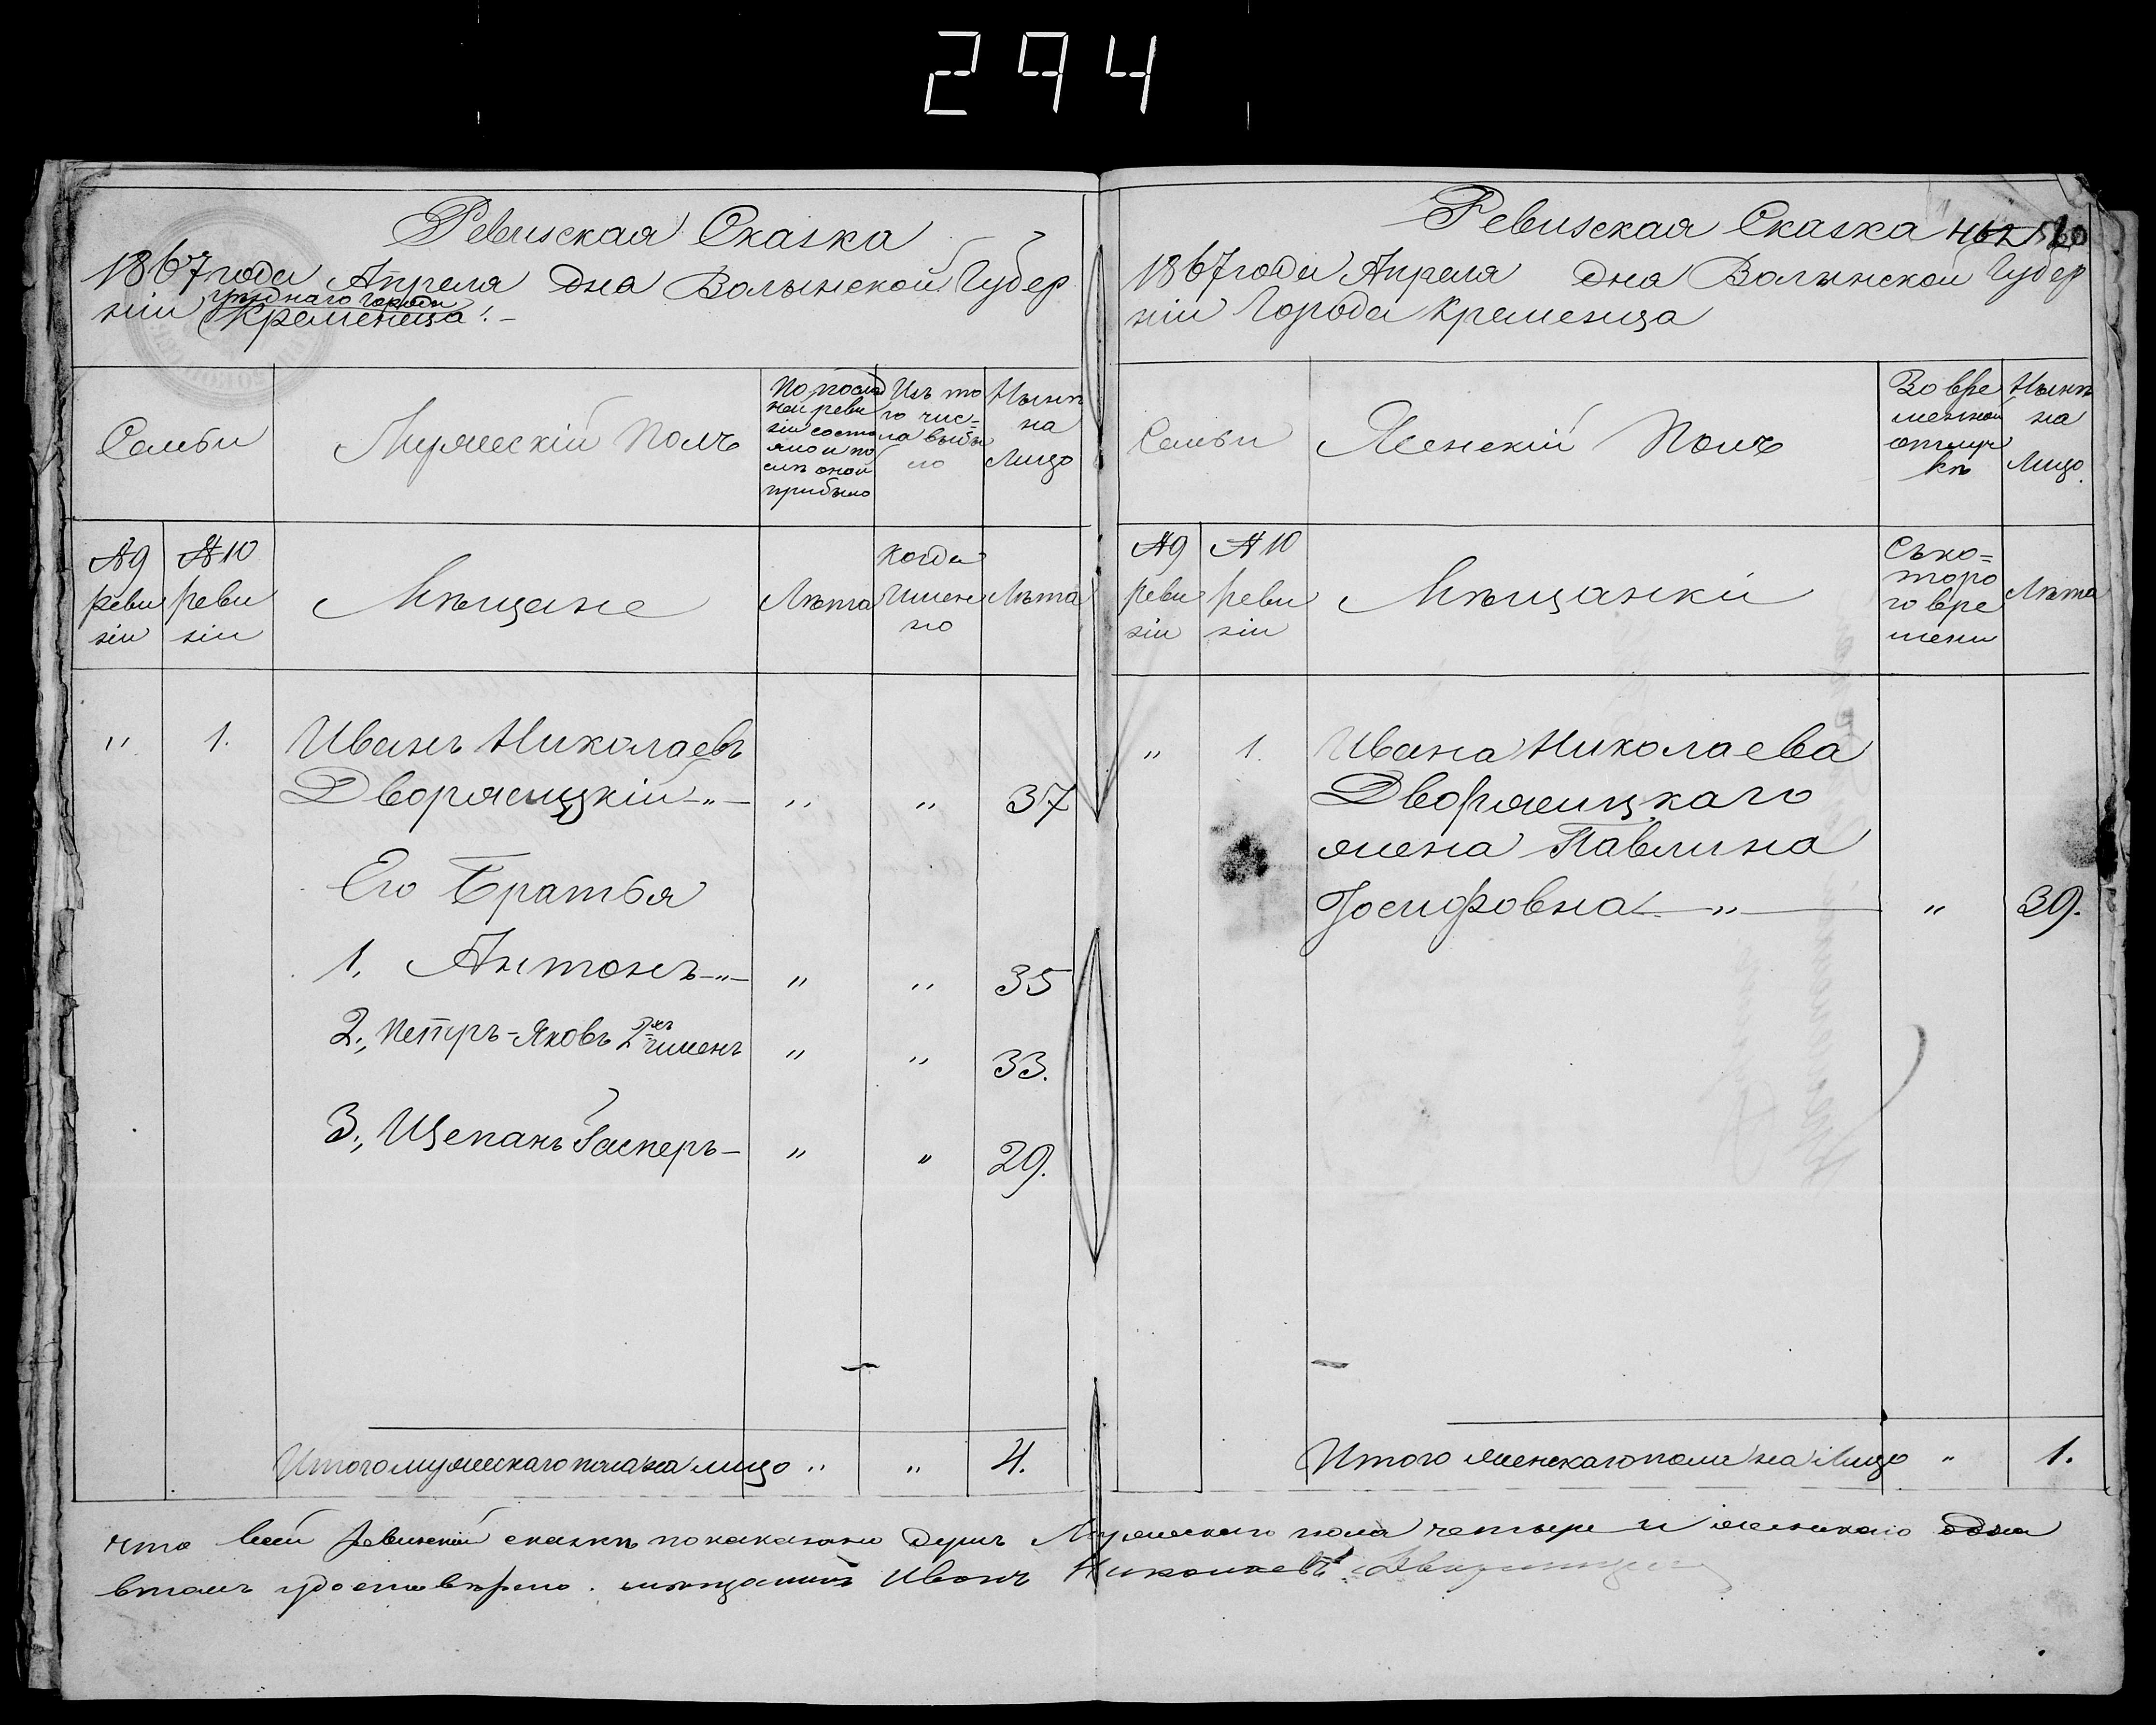 294
Ревизская Сказка
1867 года Апреля дня Волынской Губер
ніи уѣзднаго города
Кременца
Семьи
Мужескій Полъ
По послѣд
ней реви
зіи состо
яло и по
слѣ оной
прибыло
Изъ то
го чис=
ла выбы
ло
Нынѣ
на
Лицо
№ 9
реви
зіи
№ 10
реви
зіи
Мѣщане
Лѣта
Когда
Имен
но
Лѣта
" 1. Иванъ Николаевъ
Дворжицкій " " 37
Его Братья
1, Антонъ " " 35
2., Петръ-Яковъ 2хъ именъ " " 33.
3., Щепанъ Гасперъ " " 29.
Итого мужескаго пола на лицо " " 4.
Ревизская Сказка
1867 года Апреля дня Волынской Губер
ніи Города Кременца
Семьи
Женскій Полъ
Во вре
менной
отлуч
кѣ
Нынѣ
на
Лицо.
№ 9
реви
зіи
№ 10
реви
зіи
Мѣщанки
Съко=
торо
го вре
мени
Лѣта
" 1. Ивана Николаева
Дворжицкаго
жена Павлина
Іосифовна " " 39.
Итого женскаго пола на Лицо " 1.
что всей Ревизской сказкѣ покаказано душъ Мужескаго пола четыре и женскаго одна
втомъ удостоверяю. мѣщанинъ Иванъ Николаевъ Дворжицкій